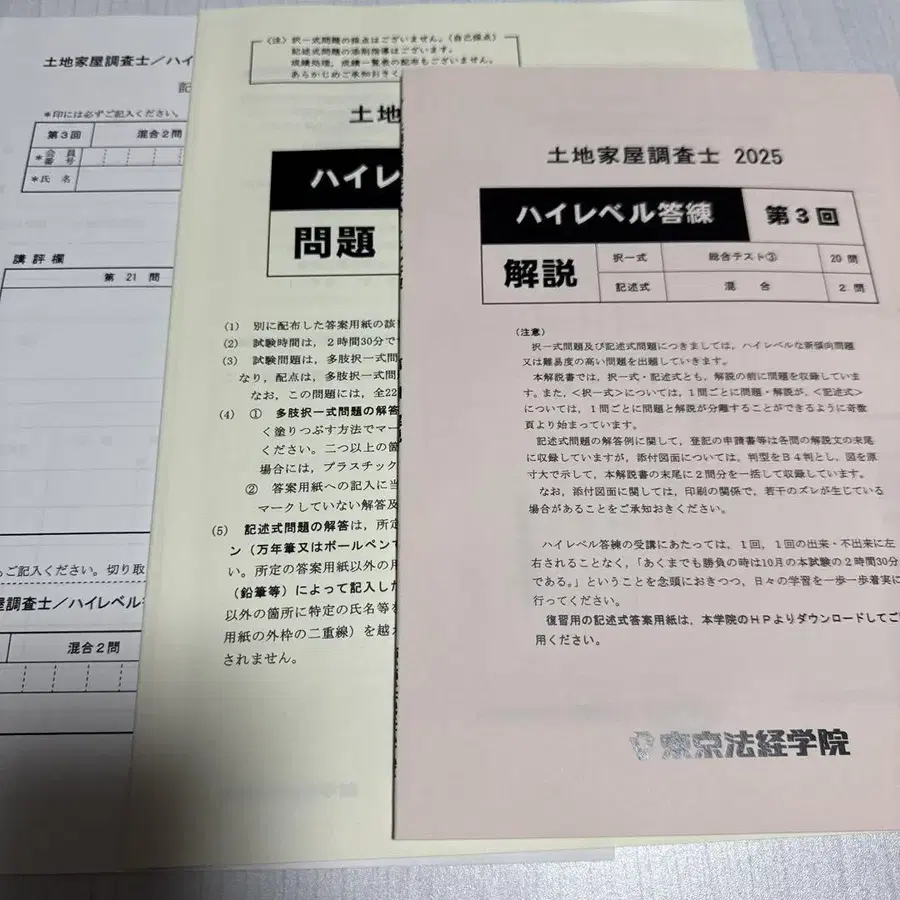 土地家屋調査士／ハイ
記
＊印には必ずご記入ください。
第３回 混合２問
＊会員番号
＊氏 名
講評欄
第 21 問
ご記入ください。切り取
屋調査士／ハイレベル
混合２問
〈注〉択一式問題の採点はございません。（自己採点）
記述式問題の添削指導はございます。
成績処理，成績一覧表の配布もございません。
あらかじめご承知おきく
土地
ハイレ
問題
(1) 別に配布した答案用紙の該
(2) 試験時間は，２時間30分で
(3) 試験問題は，多肢択一式問
なり，配点は，多肢択一式問
なお，この問題には，全22
(4) ① 多肢択一式問題の解答
く塗りつぶす方法でマー
ください。二つ以上の箇
場合には，プラスチック
② 答案用紙への記入に当
マークしていない解答及
(5) 記述式問題の解答は，所定
ン（万年筆又はボールペンで
い。所定の答案用紙以外の用
（鉛筆等）によって記入した
以外の箇所に特定の氏名等を
用紙の外枠の二重線）を越
されません。
土地家屋調査士 2025
ハイレベル答練 第３回
解説
択一式 総合テスト③ 20 問
記述式 混 合 2 問
（注意）
択一式問題及び記述式問題につきましては，ハイレベルな新傾向問題
又は難易度の高い問題を出題していきます。
本解説書では，択一式・記述式とも，解説の前に問題を収録していま
す。また，＜択一式＞については，１問ごとに問題・解説が，＜記述式＞
については，１問ごとに問題と解説が分離することができるように奇数
頁より始まっています。
記述式問題の解答例に関して，登記の申請書等は各問の解説文の末尾
に収録していますが，添付図面については，判型をＢ４判とし，図を原
寸大で示して，本解説書の末尾に２問分を一括して収録しています。
なお，添付図面に関しては，印刷の関係で，若干のズレが生じている
場合があることをご承知おきください。
ハイレベル答練の受講にあたっては，１回，１回の出来・不出来に左
右されることなく，「あくまでも勝負の時は10月の本試験の２時間30分
である。」ということを念頭におきつつ，日々の学習を一歩一歩着実に
行ってください。
復習用の記述式答案用紙は，本学院のＨＰよりダウンロードしてご
用ください。
東京法経学院